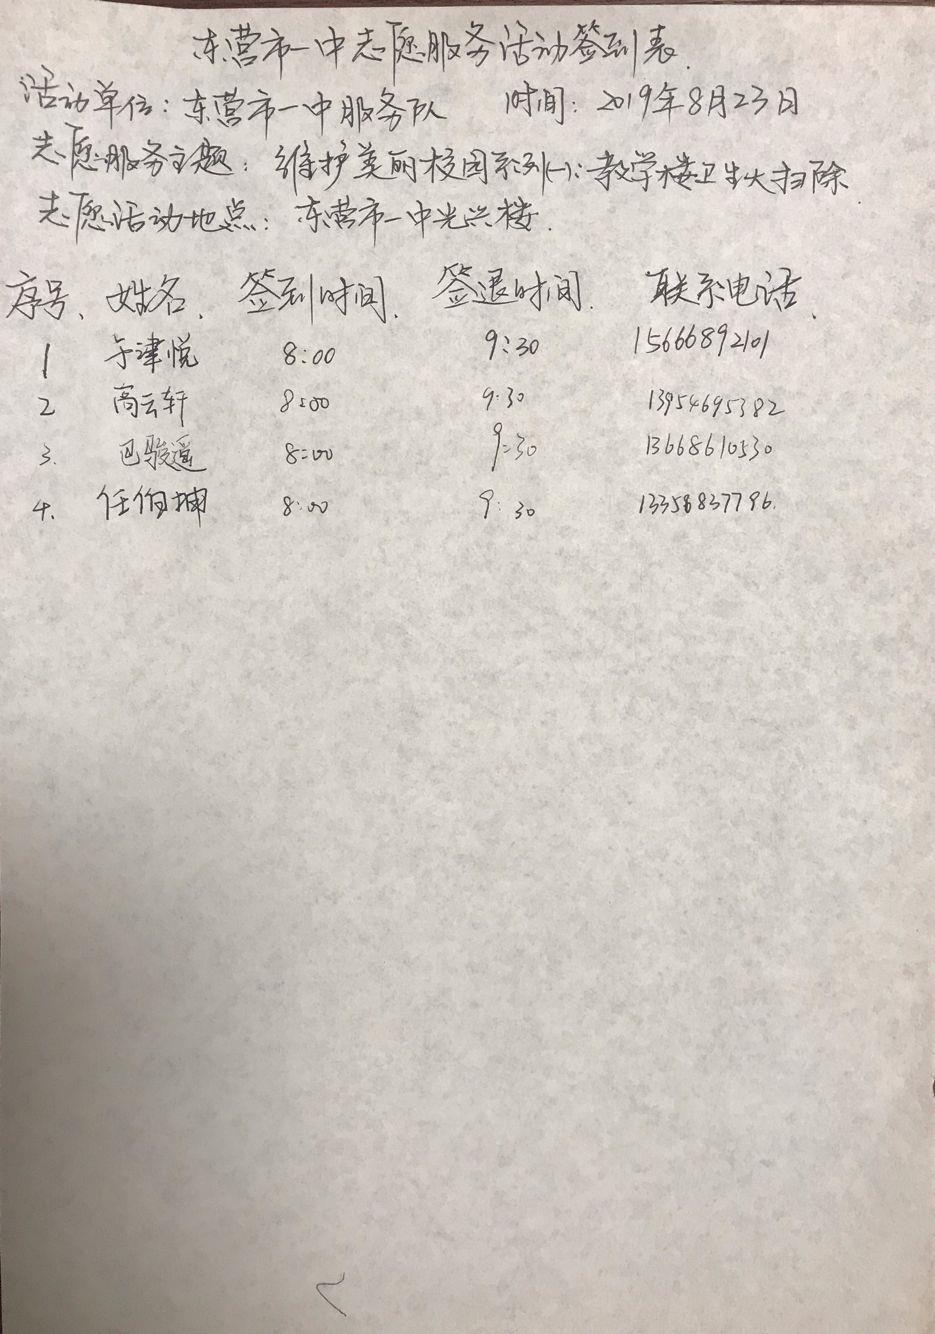 东营市一中志愿服务活动签到表.
活动单位:东营市一中服务队 时间:2019年8月23日
志愿服务主题:维护美丽校园系列(一):教学楼卫生大扫除.
志愿活动地点:东营市一中光兴楼.
序号、姓名、签到时间、签退时间、联系电话、
1 于津悦 8:00 9:30 15666892101
2 高云轩 8:00 9:30 13954695382
3. 巴骏遥 8:00 9:30 13668610530
4. 任 8:00 9:30 13356837796.